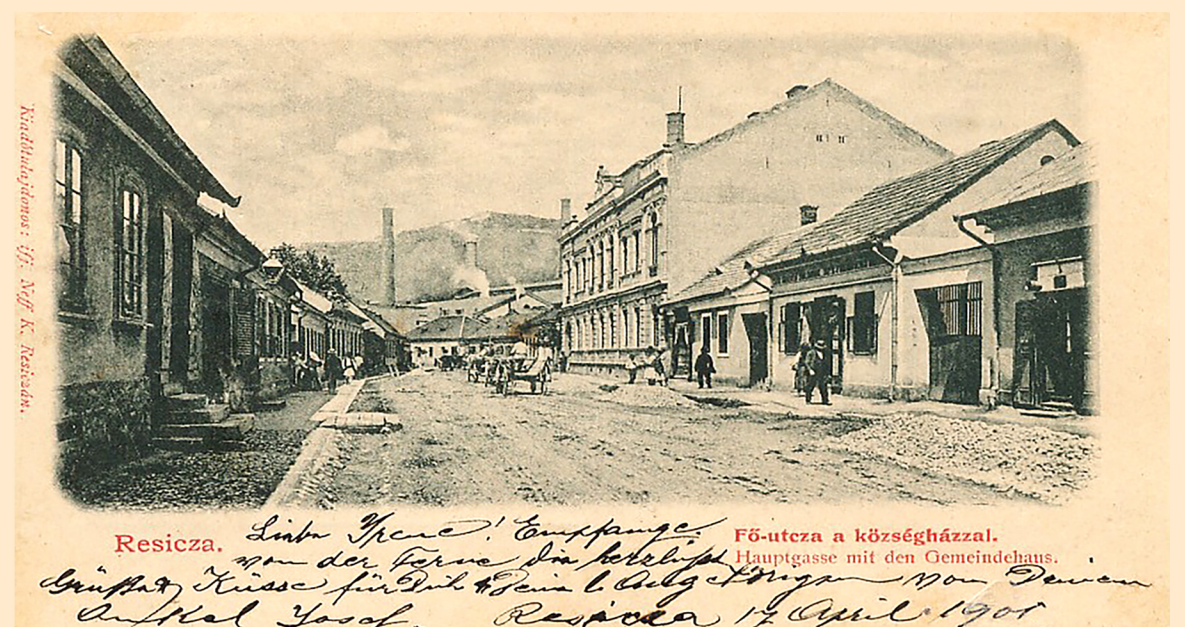 Kiadótulajdonos: ifj. Neff K. Resiczán.
Resicza.
Fő-utcza a községházzal.
Hauptgasse mit den Gemeindehaus.
Liebe Yrene! Empfange
von der Ferne die herzlichst
Grüße & Küsse für Dich & Deine l. Angehörigen von Deinem
Onkel Josef. Resicza 17 April 1901